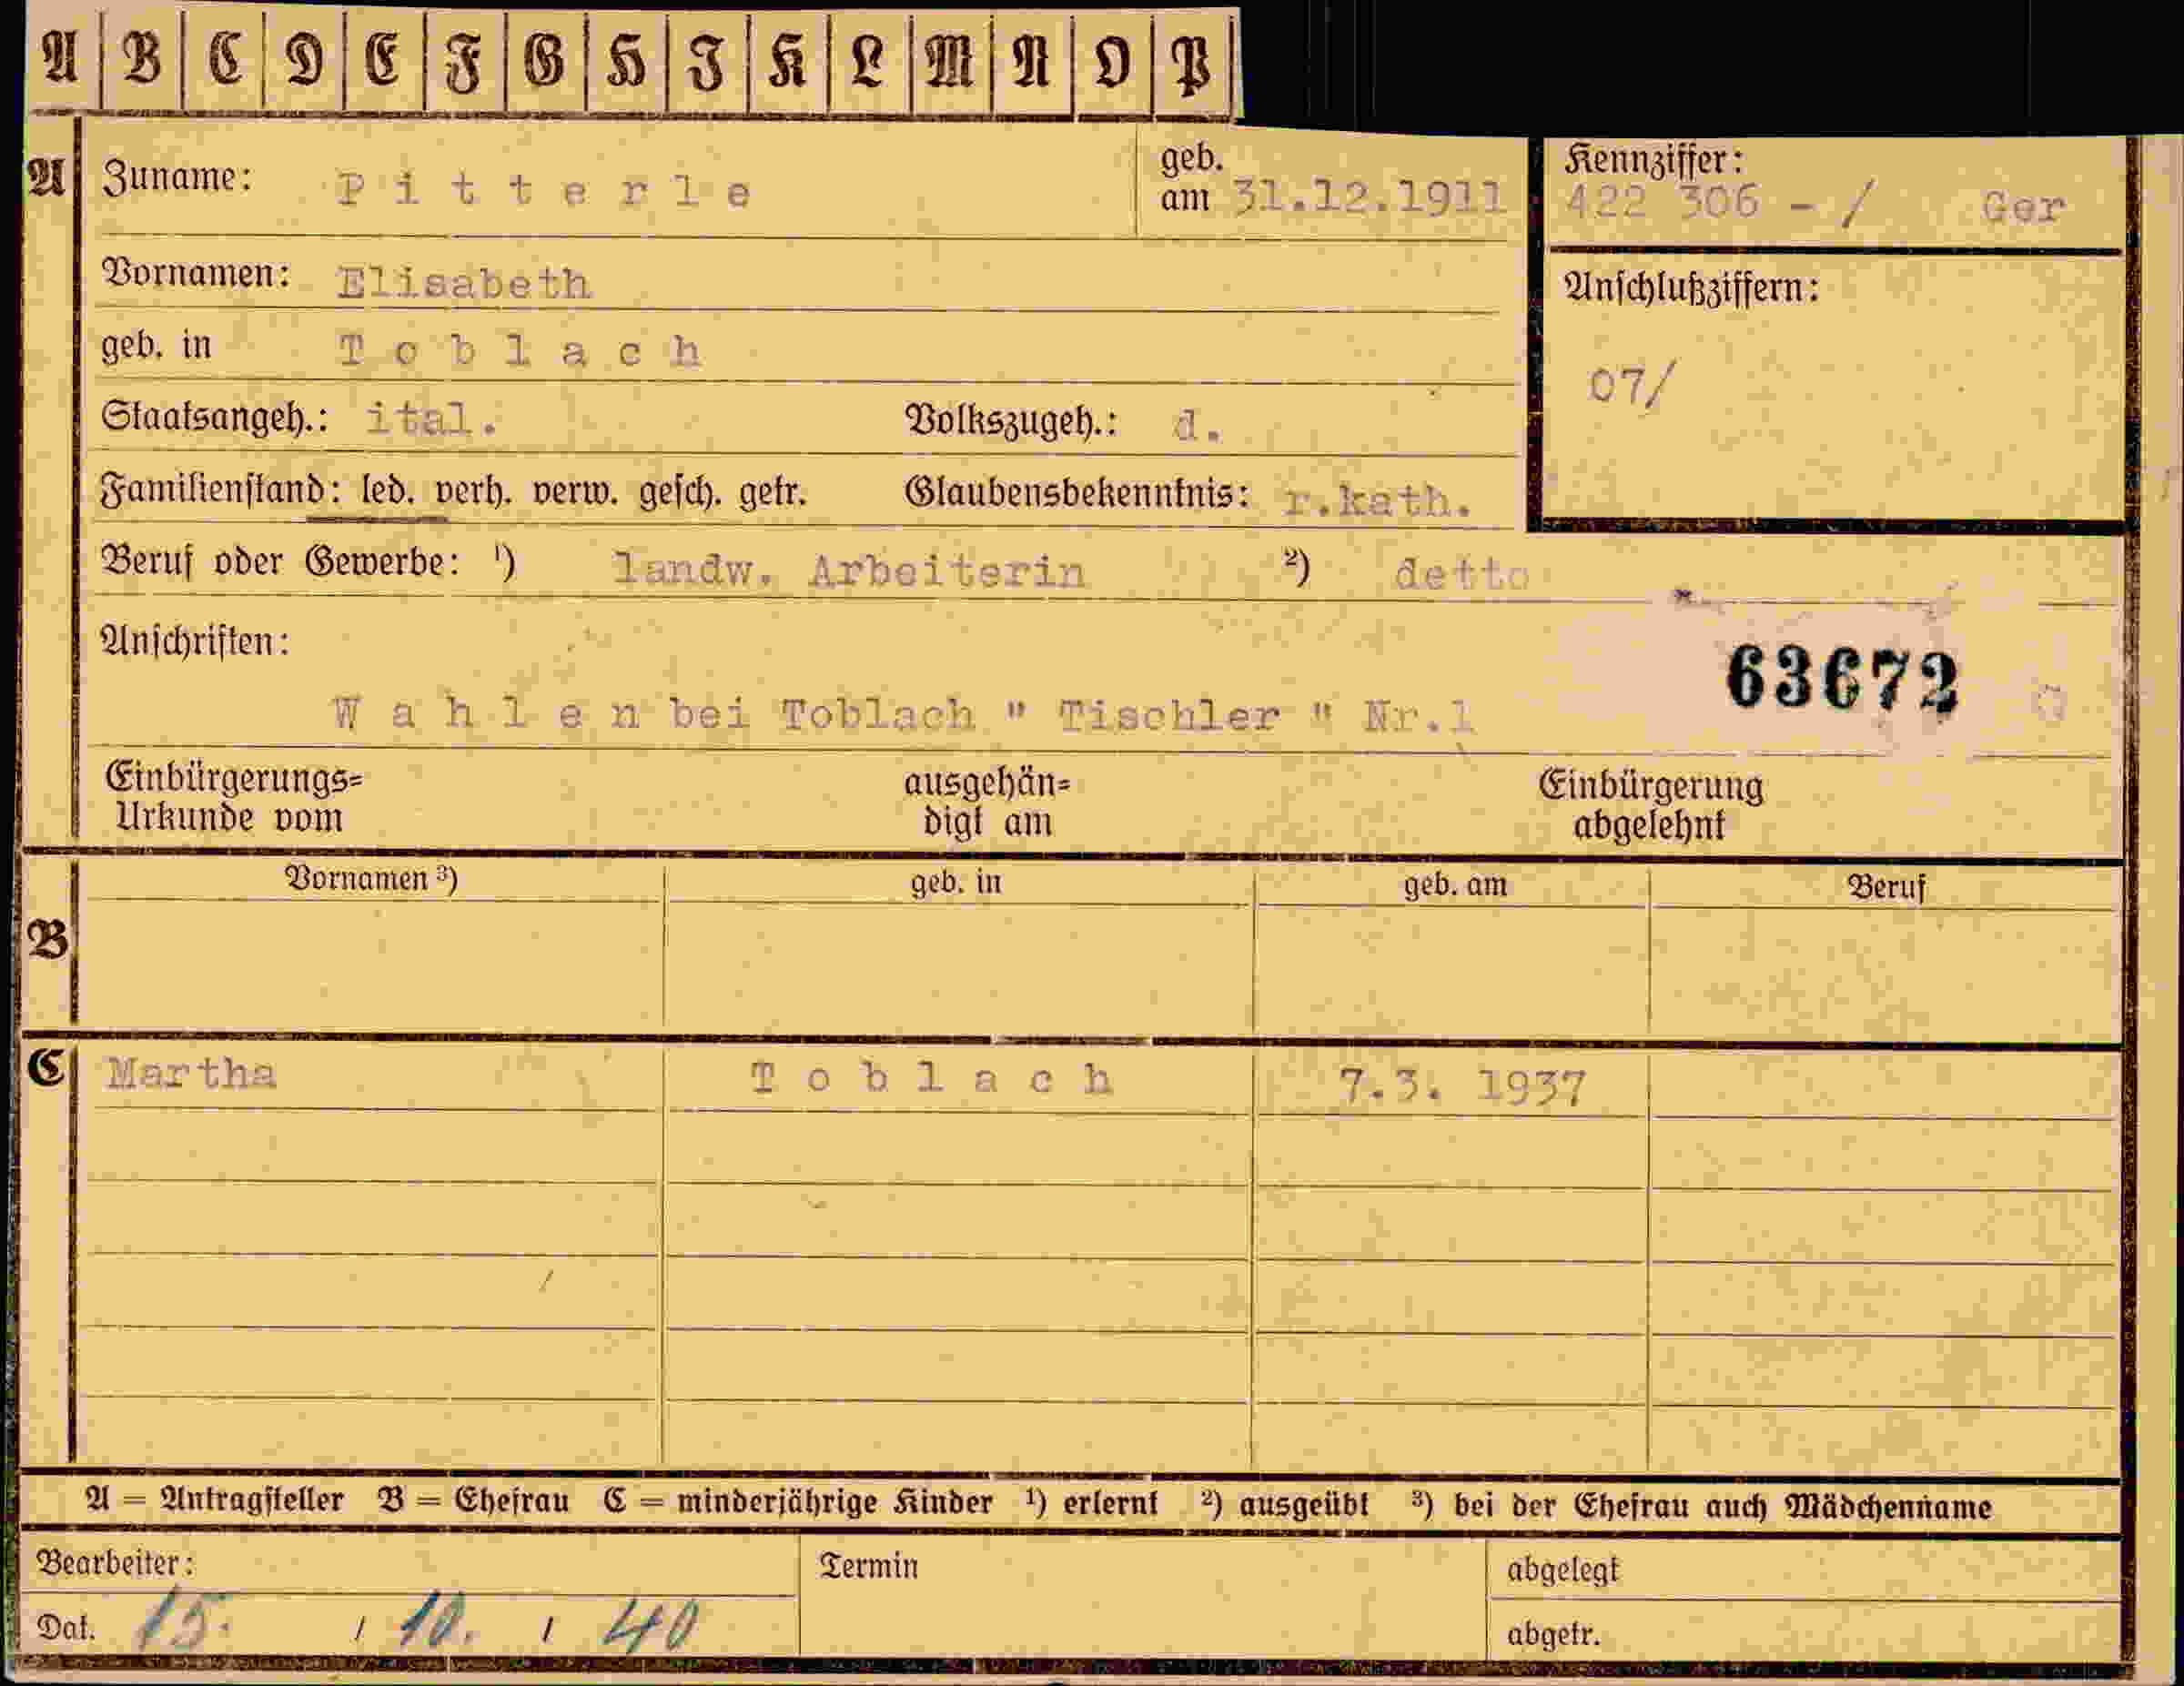 A B C D E F G H J K L M N O P
A Zuname: Pitterle geb. am 31.12.1911 Kennziffer: 422 306 - / Ger
Vornamen: Elisabeth Anschlußziffern:
geb. in Toblach 07/
Staatsangeh.: ital. Volkszugeh.: d.
Familienstand: led. verh. verw. gesch. getr. Glaubensbekenntnis: r.kath.
Beruf oder Gewerbe: ¹) landw. Arbeiterin ²) detto
Anschriften: 63672
Wahlen bei Toblach " Tischler " Nr.1
Einbürgerungs= ausgehän= Einbürgerung
Urkunde vom digt am abgelehnt
Vornamen ³) geb. in geb. am Beruf
B
C Martha Toblach 7.3. 1937
A = Antragsteller B = Ehefrau C = minderjährige Kinder ¹) erlernt ²) ausgeübt ³) bei der Ehefrau auch Mädchenname
Bearbeiter: Termin abgelegt
Dat. 15. / 10. / 40 abgetr.